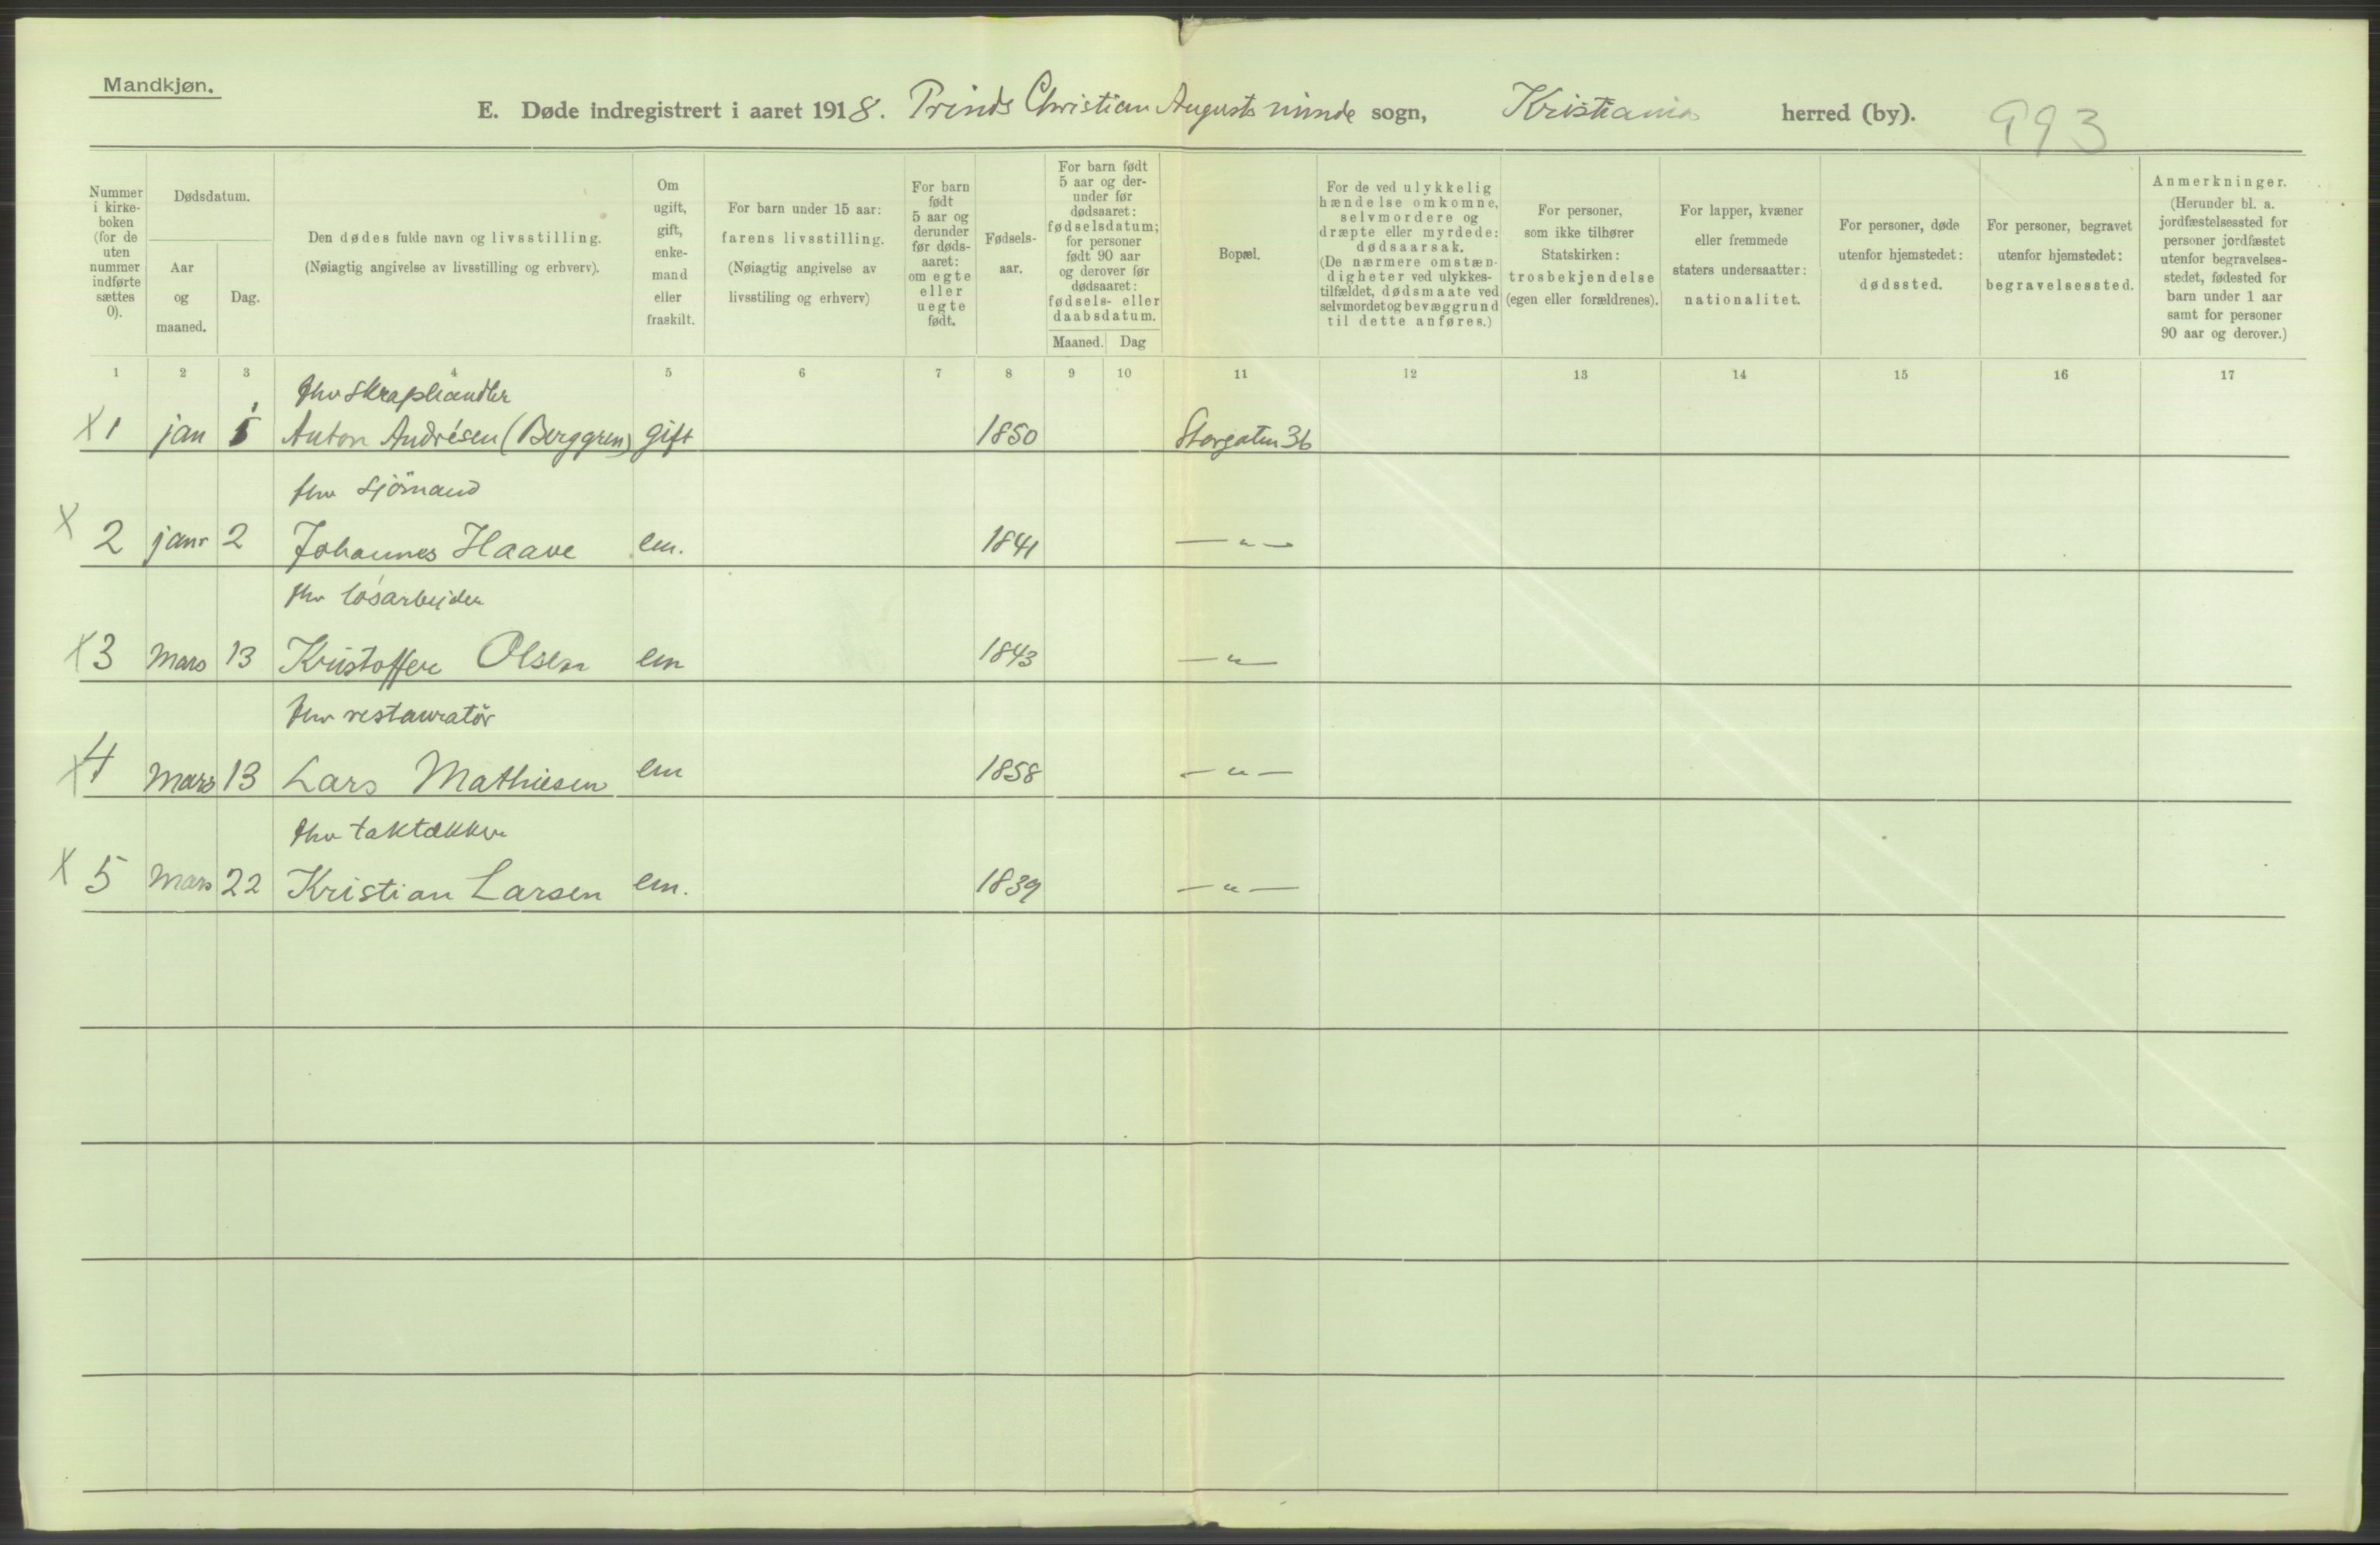 Mandkjøn.
E. Døde indregistrert i aaret 1918. Prinds Christian Augusts minde sogn, Kristiania herred (by). 993
Nummer i kirke-boken (for de uten nummer indførte sættes 0).
Dødsdatum.
Aar og maaned.
Dag.
Den dødes fulde navn og livsstilling.
(Nøiagtig angivelse av livsstilling og erhverv).
Om ugift, gift, enke-mand eller fraskilt.
For barn under 15 aar:
farens livsstilling.
(Nøiagtig angivelse av livsstiling og erhverv)
For barn født 5 aar og derunder før døds-aaret: om egte eller uegte født.
Fødsels-aar.
For barn født 5 aar og der-under før dødsaaret: fødselsdatum; for personer født 90 aar og derover før dødsaaret: fødsels- eller daabsdatum.
Maaned.
Dag
Bopæl.
For de ved ulykkelig hændelse omkomne, selvmordere og dræpte eller myrdede: dødsaarsak.
(De nærmere omstæn-digheter ved ulykkes-tilfældet, dødsmaate ved selvmordet og bevæggrund til dette anføres.)
For personer, som ikke tilhører Statskirken: trosbekjendelse (egen eller forældrenes).
For lapper, kvæner eller fremmede staters undersaatter: nationalitet.
For personer, døde utenfor hjemstedet: dødssted.
For personer, begravet utenfor hjemstedet: begravelsessted.
Anmerkninger.
(Herunder bl. a. jordfæstelsessted for personer jordfæstet utenfor begravelses-stedet, fødested for barn under 1 aar samt for personer 90 aar og derover.)
1 2 3 4 5 6 7 8 9 10 11 12 13 14 15 16 17
fhv skraphandler
X 1 jan Anton Andrésen (Berggren) gift 1850 Storgaten 36
fhv sjömand
X 2 janr 2 Johannes Haave em. 1841 — " —
fhv løsarbeider
X 3 Mars 13 Kristoffer Olsen em 1843 — " —
fhv restauratör
X 4 Mars 13 Lars Mathiesen em 1858 — " —
fhv taktækker
X 5 Mars 22 Kristian Larsen em. 1839 — " —